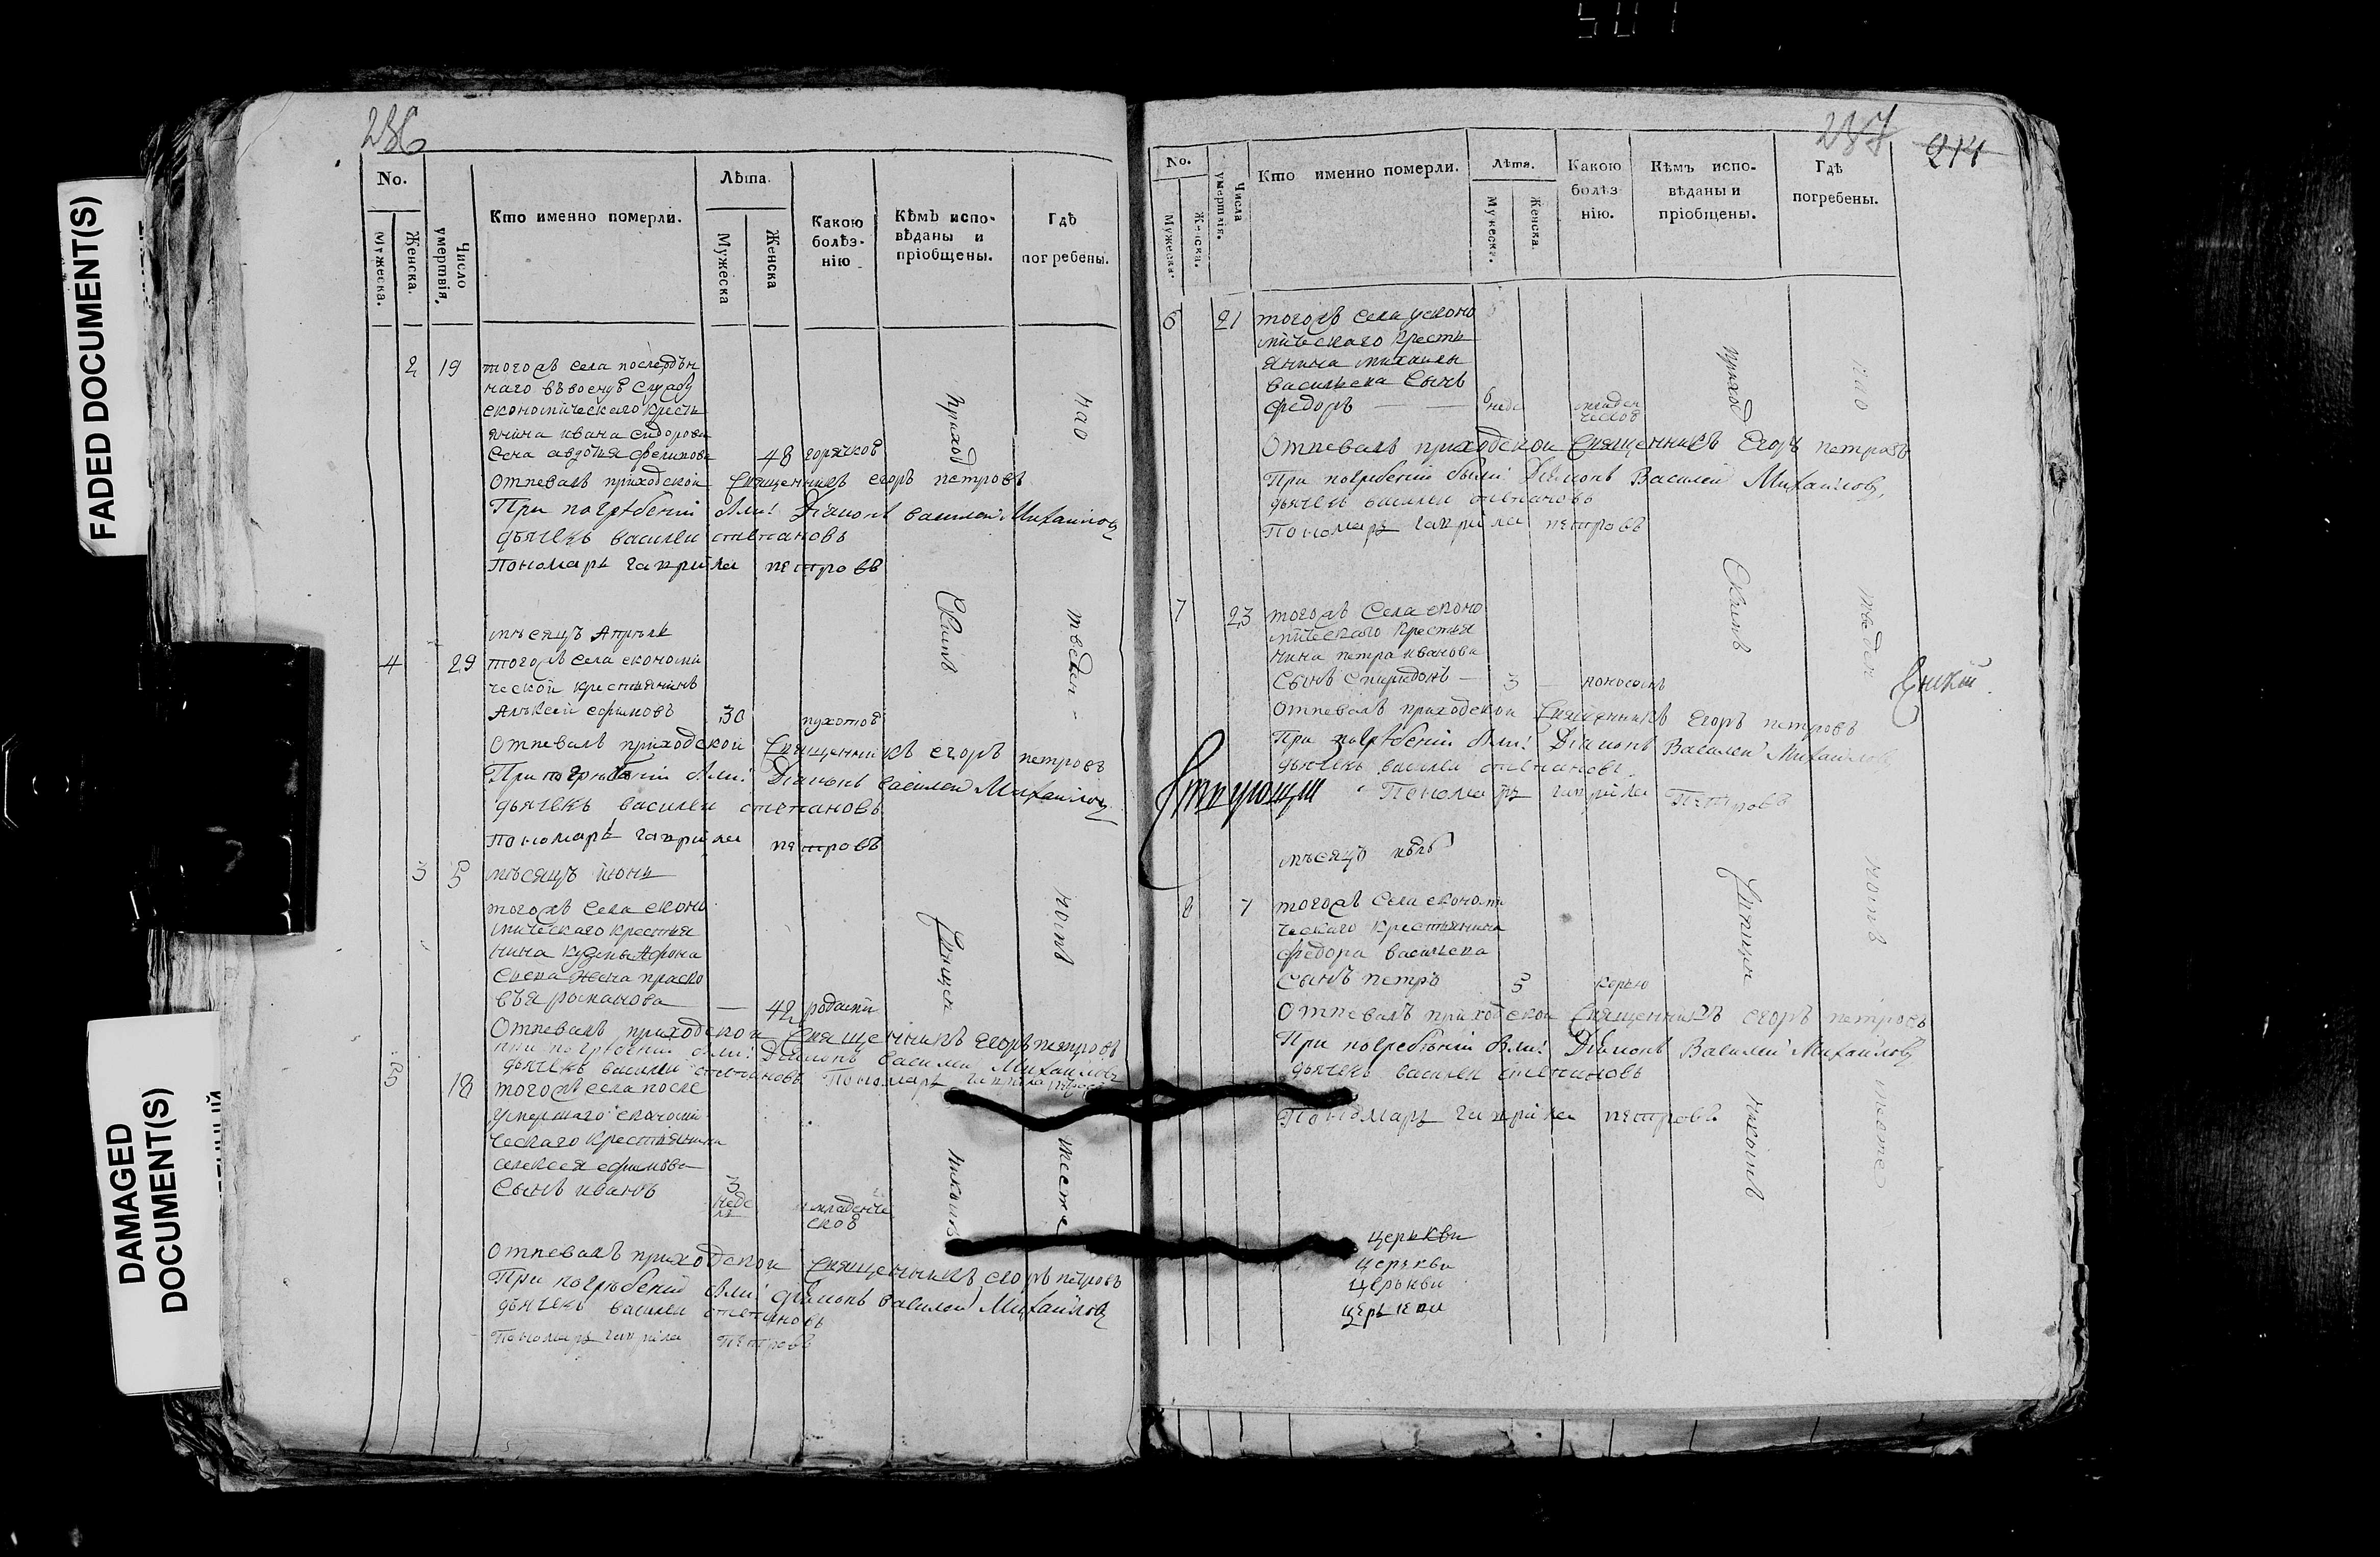 FADED DOCUMENT(S)
DAMAGED
DOCUMENT(S)
501
236
No.
Мужеска.
Женска.
Число
умертвія.
Кто именно померли.
Лѣта.
Мужеска
Женска
Какою
болѣз-
нію
Кѣмъ испо-
вѣданы и
пріобщены.
Гдѣ
погребены.
2 19 тогожъ села
наго
економическаго кресть
янина ивана сидорова
48 горячкою
Отпевалъ приходской Священникъ егоръ петровъ
При погрѣбеніи были: Діаконъ василей Михайловъ
дьячекъ василеи степановъ
Пономарь гаврила петровъ
мѣсяцъ Апрѣль
4 29 тогожъ села економи
ческой крестьянинъ
Алѣксей ефимовъ 30
Отпевалъ приходской Священникъ егоръ петровъ
При погрѣбеніи были: Діаконъ василей Михайловъ
дьячекъ василеи степановъ
Пономарь гаврила петровъ
3 5 мѣсяцъ июнь
тогожъ села еконо
мическаго крестья
нина
жена праско
вья романова — 42 родами
Отпевалъ приходской Священникъ егоръ петровъ
при погрѣбеніи были: Діаконъ василеи Михайловъ
дьячекъ василеи степановъ Пономарь гаврила петровъ
5 18 тогожъ села после
умершаго економи
ческаго крестьянина
алексея ефимова
сынъ иванъ 3
неде
ли младенче
скою
Отпевалъ приходской Священникъ егоръ петровъ
При погрѣбении были: діаконъ василей Михайловъ
дьячекъ василеи степановъ
Пономарь гаврила петровъ
приход
Скимъ
Священ
никомъ
на о
тведен
номъ
месте
237
214
No.
Мужеска.
Женска.
Числа
умертвія.
Кто именно померли.
Лѣта.
Мужеска.
Женска.
Какою
болѣз-
нію.
Кѣмъ испо-
вѣданы и
пріобщены.
Гдѣ
погребены.
6 21 тогожъ села
мическаго кресть
янина михаилы
васильева сынъ
федоръ — — 6 неде младен
ческою
Отпевалъ приходской Священникъ Егоръ петровъ
При погребеніи были: Діаконъ Василей Михайловъ
дьячекъ василеи степановъ
Пономарь гаврила петровъ
7 23 тогожъ села еконо
мическаго крестья
нина петра иванова
сынъ спиридонъ — 3 — поносомъ
Отпевалъ приходской Священникъ егоръ петровъ
При погрѣбеніи были: Діаконъ Василей Михайловъ
дьячекъ василеи степановъ
Пономарь гаврила петровъ
мѣсяцъ
8 7 тогожъ села економи
ческаго крестьянина
федора васильева
сынъ петръ 3 корью
Отпевалъ приходской Священникъ егоръ петровъ
При погребѣніи были: Діаконъ Василей Михайловъ
дьячекъ василеи степановъ
Пономарь гаврила петровъ
приход
Скимъ
никомъ
на о
тведен
номъ
месте
церькви
церькви
церькви
церькви